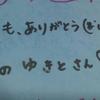 も、ありがとう
の ゆきとさん♡